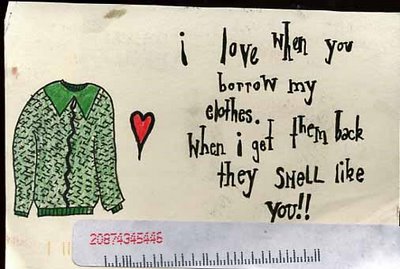 i love when you
borrow my
clothes.
When i get them back
they SMELL like
YOU!!
20874345445